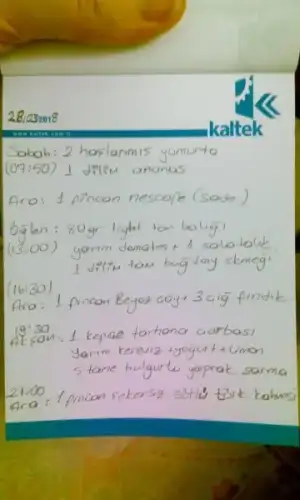 28.03.2018
kaltek
Sabah: 2 haşlanmış yumurta
(09:50) 1 dilim ananas
Ara: 1 fincan nescafe (sade)
Öğlen: 80 gr light ton balığı
(13:00) yarım domates + 1 salatalık
1 dilim tam buğday ekmeği
(16:30)
Ara: 1 fincan Beyaz çay + 3 çiğ fındık
19:30
Akşam: 1 kepçe tarhana çorbası
Yarım kereviz + yoğurt + limon
5 tane bulgurlu yaprak sarma
21:00
Ara: 1 fincan şekersiz sütlü türk kahvesi